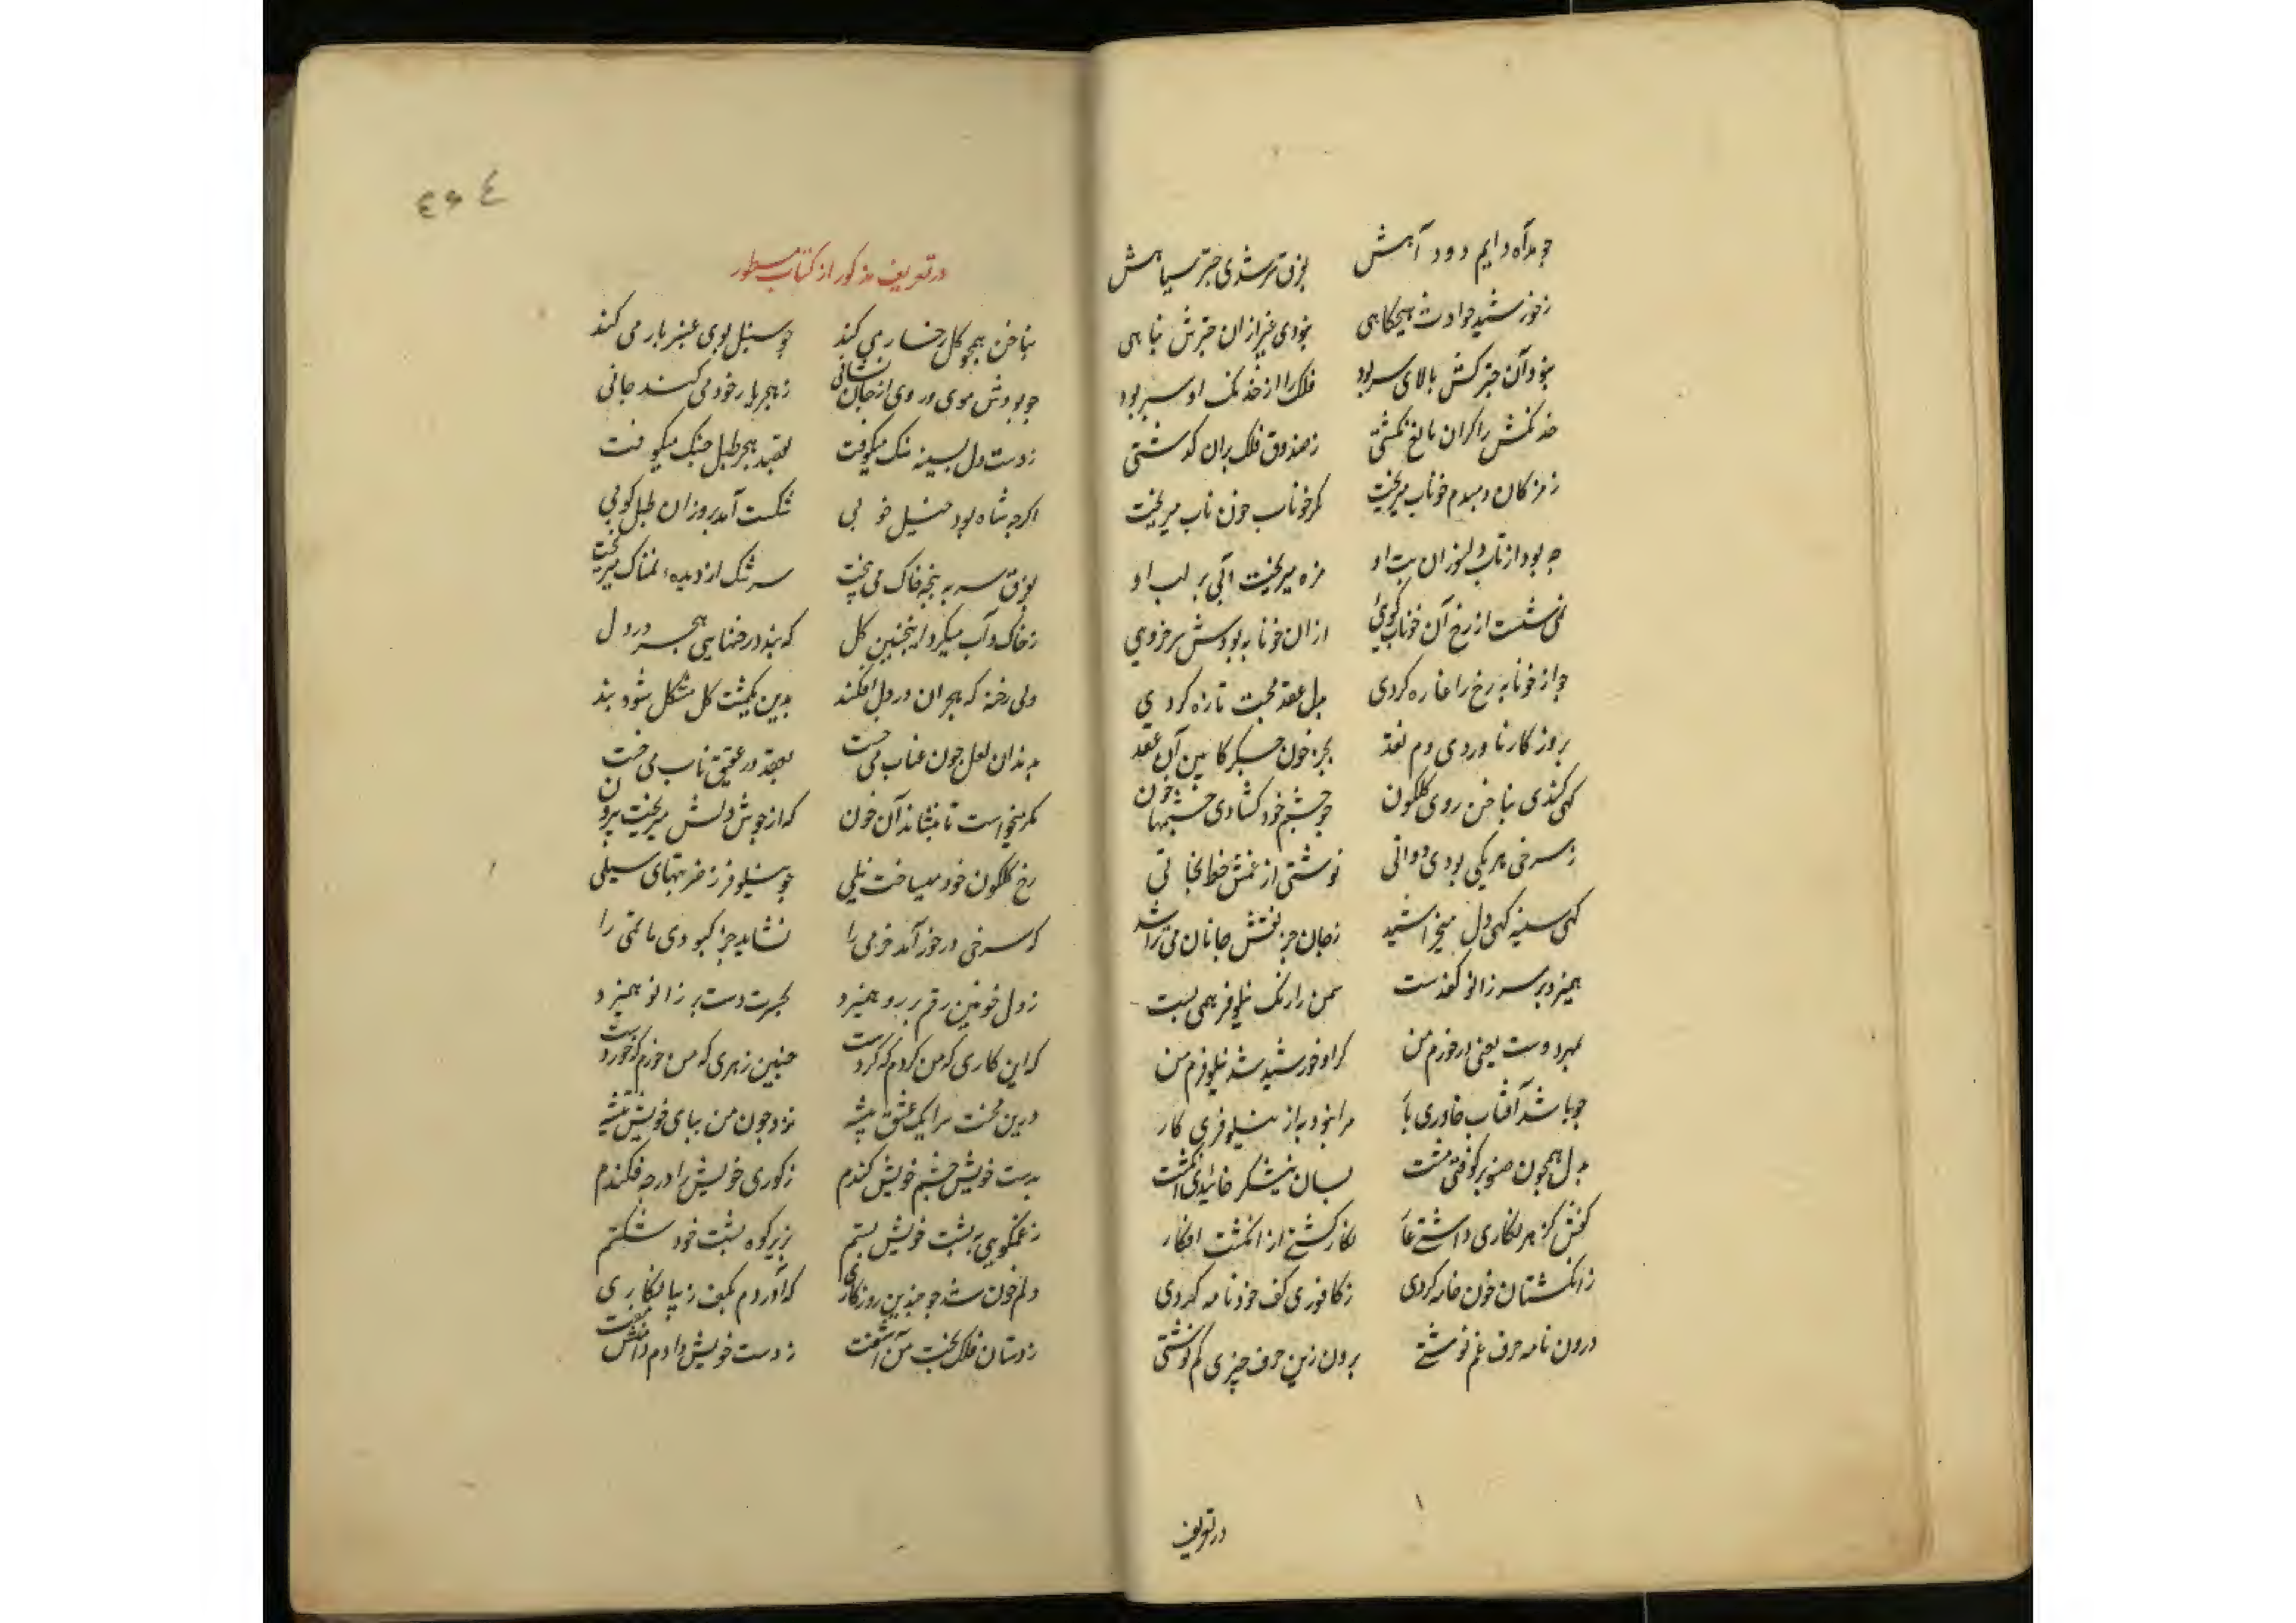 چو مد آه دایم دود آهش بفرقش شدی چتر سیاهش
ز خورشید حوادث هیچگاهی نبودی غیر از آن چترش پناهی
نبود آن چتر کش بالای سر بود فلک را از خدنک او سپر بود
خدنکش را کر آن مانع نکشتی ز صندوق فلک پران کذشتی
ز مژکان دمبدم خوناب میریخت مکو خوناب خون ناب میریخت
چه بود از تاب دل سوزان تب او مژه میریخت آبی بر لب او
نمی شست از رخ آن خوناب کویی از آن خونابه بودش سرخ رویی
چو از خونابه رخ را غازه کردی بدل عقد محبت تازه کردی
بروز کار ناوردی دم نقد بجز خون جکر کابین آن عقد
کهی کندی بناخن روی کلکون چو چشم خود کشادی چشمهاء خون
ز سرخی هر یکی بودی دواتی نوشتی از غمش خط نجاتی
کهی سینه کهی دل میخراشید ز جان جز نقش جانان می تراشید
همیزد بر سر زانو کف دست سمن را رنک نیلوفر همی بست
بمهر دوست یعنی در خورم من کر او خورشید شد نیلوفرم من
چو باشد آفتاب خاوری یا مرا نبود به از نیلوفری کار
بدل همچون صنوبر کوفتی مشت بسان نیشکر خائیدی انکشت
کفش کز هر نکاری داشتی عا نکارکشتی از انکشت افکار
ز انکشتان خون خامه کردی ز کافوری کف خود نامه کردی
درون نامه حرف غم نوشتی برون زین حرف چیزی کم نوشتی
در تعریف
٤٩٤
در تعریف مذکور از کتاب مسطور
بناخن همچو کل رخسار می کند چو سنبل بوی عنبر بار می کند
چو بودش موی و روی از جان نشانی ز هجر یار خود می کند جانی
ز دست دل بسینه سنک میکوفت بقصد هجر طبل جنک میکوفت
اکرچه شاه بود خیل خوبی شکست آمد برو زان طبل کوبی
بفرق سر به پنجه خاک می بیخت سرشک از دیدهء نمناک میریخت
ز خاک و آب میکرد اینچنین کل که بندد رخنهایی هجر در دل
ولی رخنه که هجران در دل افکند بدین یکمشت کل مشکل شود بند
بدندان لعل چون عناب می خست بعقد در عقیق ناب می خست
مکر میخواست تا بنشاند آن خون که از جوش دلش میریخت بیرون
رخ کلکون خود میساخت نیلی چو نیلوفر ز ضربتهای سیلی
که سرخی در خور آمد خرمی را نشاید جز کبودی ماتمی را
ز دل خونین رقم بر رو همیزد بحسرت دست بر زانو همیزد
که این کاری که من کردم که کردست چنین زهری که من خوردم که خوردست
درین محنت سرا یک عشق پیشه نزد چون من بپای خویش تیشه
بدست خویش چشم خویش کندم ز کوری خویش را در چه فکندم
ز غم کوهی به پشت خویش بستم بزیر کوه پشت خود شکستم
دلم خون شد چو چندین روزکاری که آوردم بکف زیبا نکاری
ز دستان فلک بخت من آشفت ز دست خویش دادم دامنش مفت